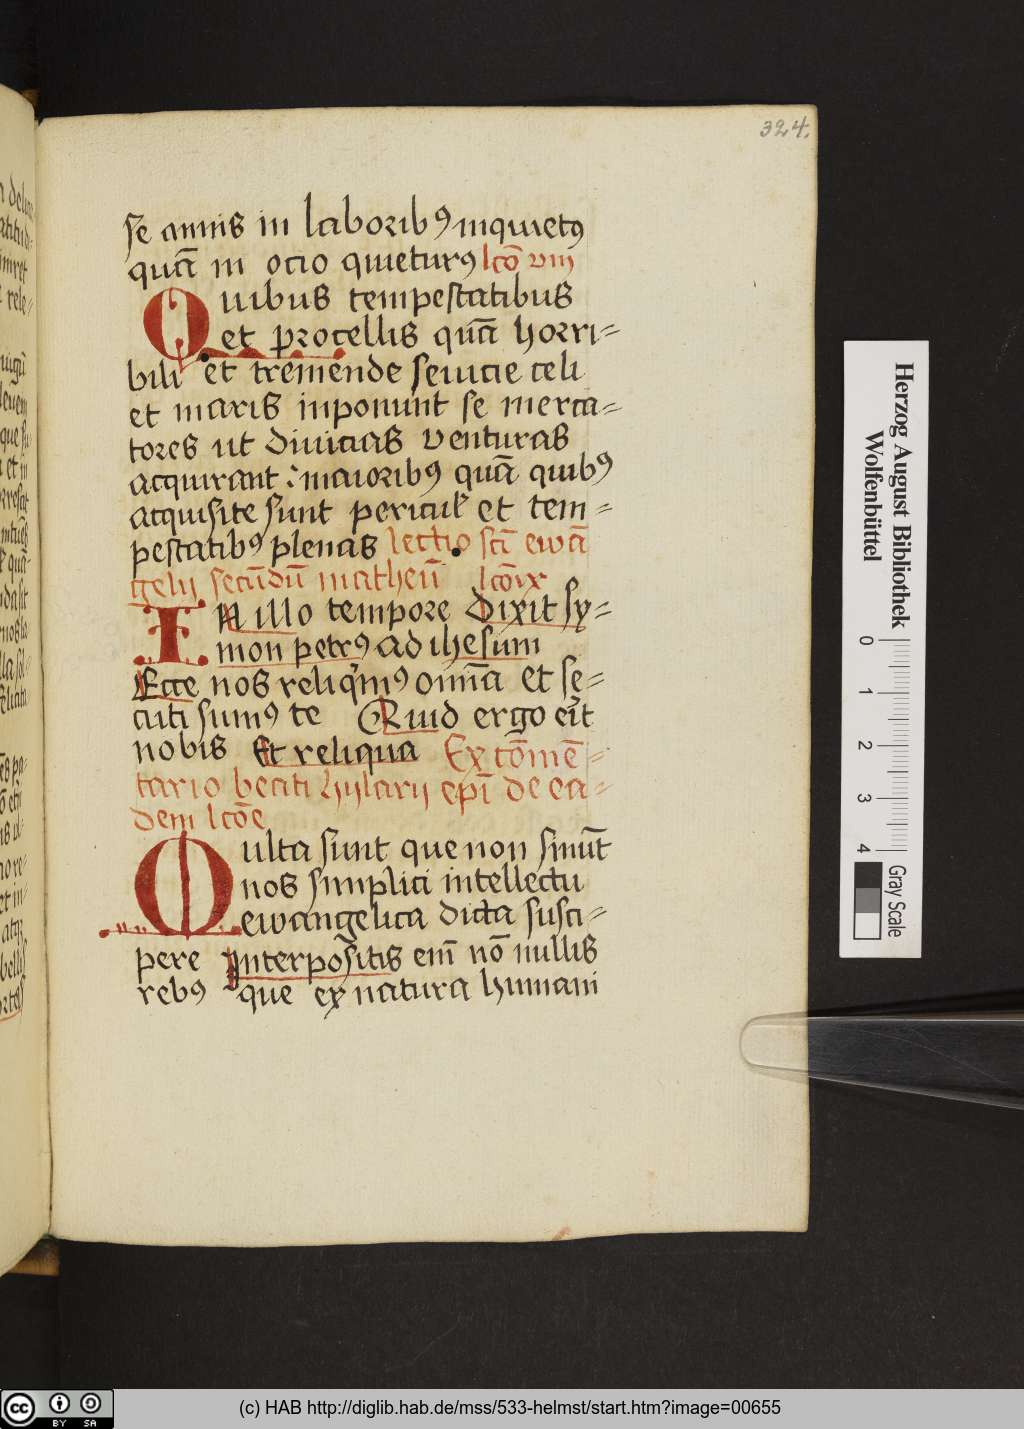 324.
se annis in laboribꝰ inquietꝰ
quā in ocio quieturꝰ lcō viij
Quibus tempestatibus
et procellis quā horri⸗
bili et tremende seuicie celi
et maris inponunt se merca⸗
tores ut diuicias venturas
acquirant : maioribꝰ quā quibꝰ
acquisite sunt pericul̄ et tem⸗
pestatibꝰ plenas lectio scī ewā
gelij secūdū matheū lcō ix
IN illo tempore dixit sy⸗
mon petrꝰ ad ihesum
Ecce nos reliqͥmꝰ omīa et se⸗
cuti sumꝰ te Quid ergo eīt
nobis Et reliqua Ex cōmē⸗
tario beati hylarij epī de ea⸗
dem lcōe
Multa sunt que non sinūt
nos simplici intellectu
ewangelica dicta susci⸗
pere Interpositis enī nō nullis
rebꝰ que ex natura humani
Herzog August Bibliothek
Wolfenbüttel
0
1
2
3
4
Gray Scale
cc BY SA
(c) HAB http://diglib.hab.de/mss/533-helmst/start.htm?image=00655